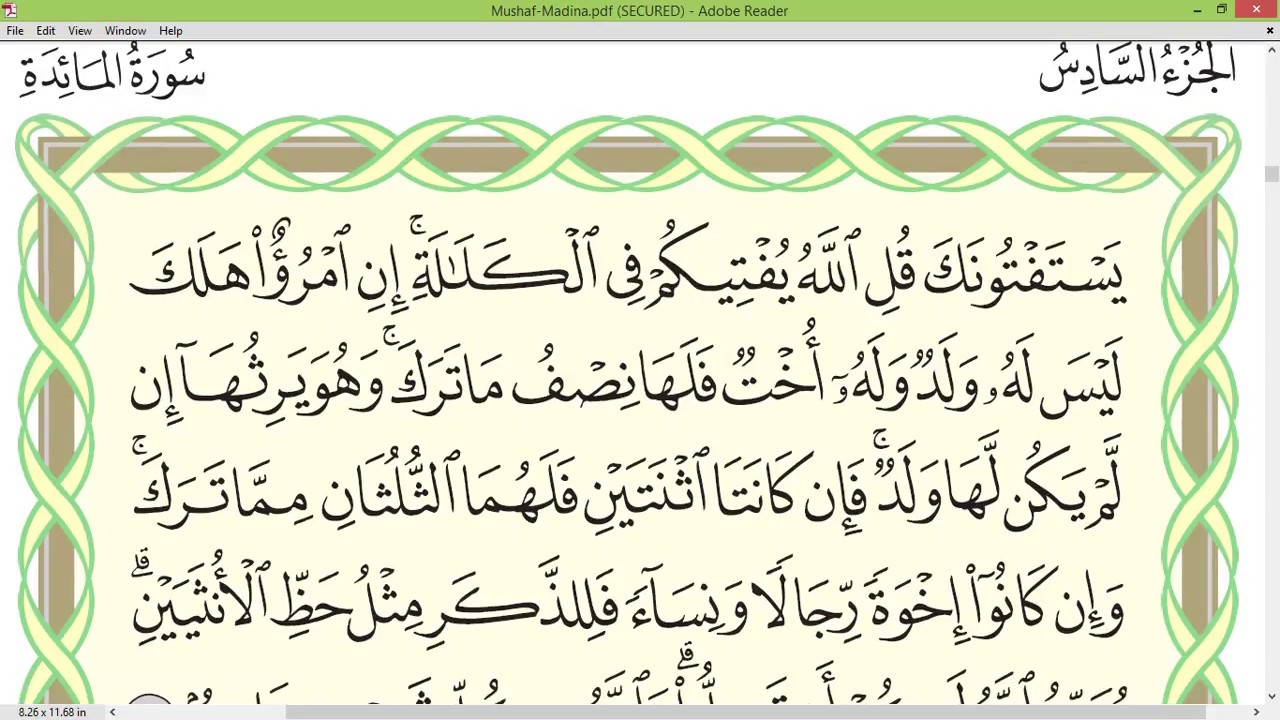 Mushaf-Madina.pdf (SECURED) - Adobe Reader
File Edit View Window Help
الجُزْءُ السَّادِسُ سُورَةُ المَائِدَةِ
يَسْتَفْتُونَكَ قُلِ ٱللَّهُ يُفْتِيكُمْ فِى ٱلْكَلَـٰلَةِ ۚ إِنِ ٱمْرُؤٌا۟ هَلَكَ
لَيْسَ لَهُۥ وَلَدٌ وَلَهُۥٓ أُخْتٌ فَلَهَا نِصْفُ مَا تَرَكَ ۚ وَهُوَ يَرِثُهَآ إِن
لَّمْ يَكُن لَّهَا وَلَدٌ ۚ فَإِن كَانَتَا ٱثْنَتَيْنِ فَلَهُمَا ٱلثُّلُثَانِ مِمَّا تَرَكَ ۚ
وَإِن كَانُوٓا۟ إِخْوَةً رِّجَالًا وَنِسَآءً فَلِلذَّكَرِ مِثْلُ حَظِّ ٱلْأُنثَيَيْنِ ۗ
8.26 x 11.68 in